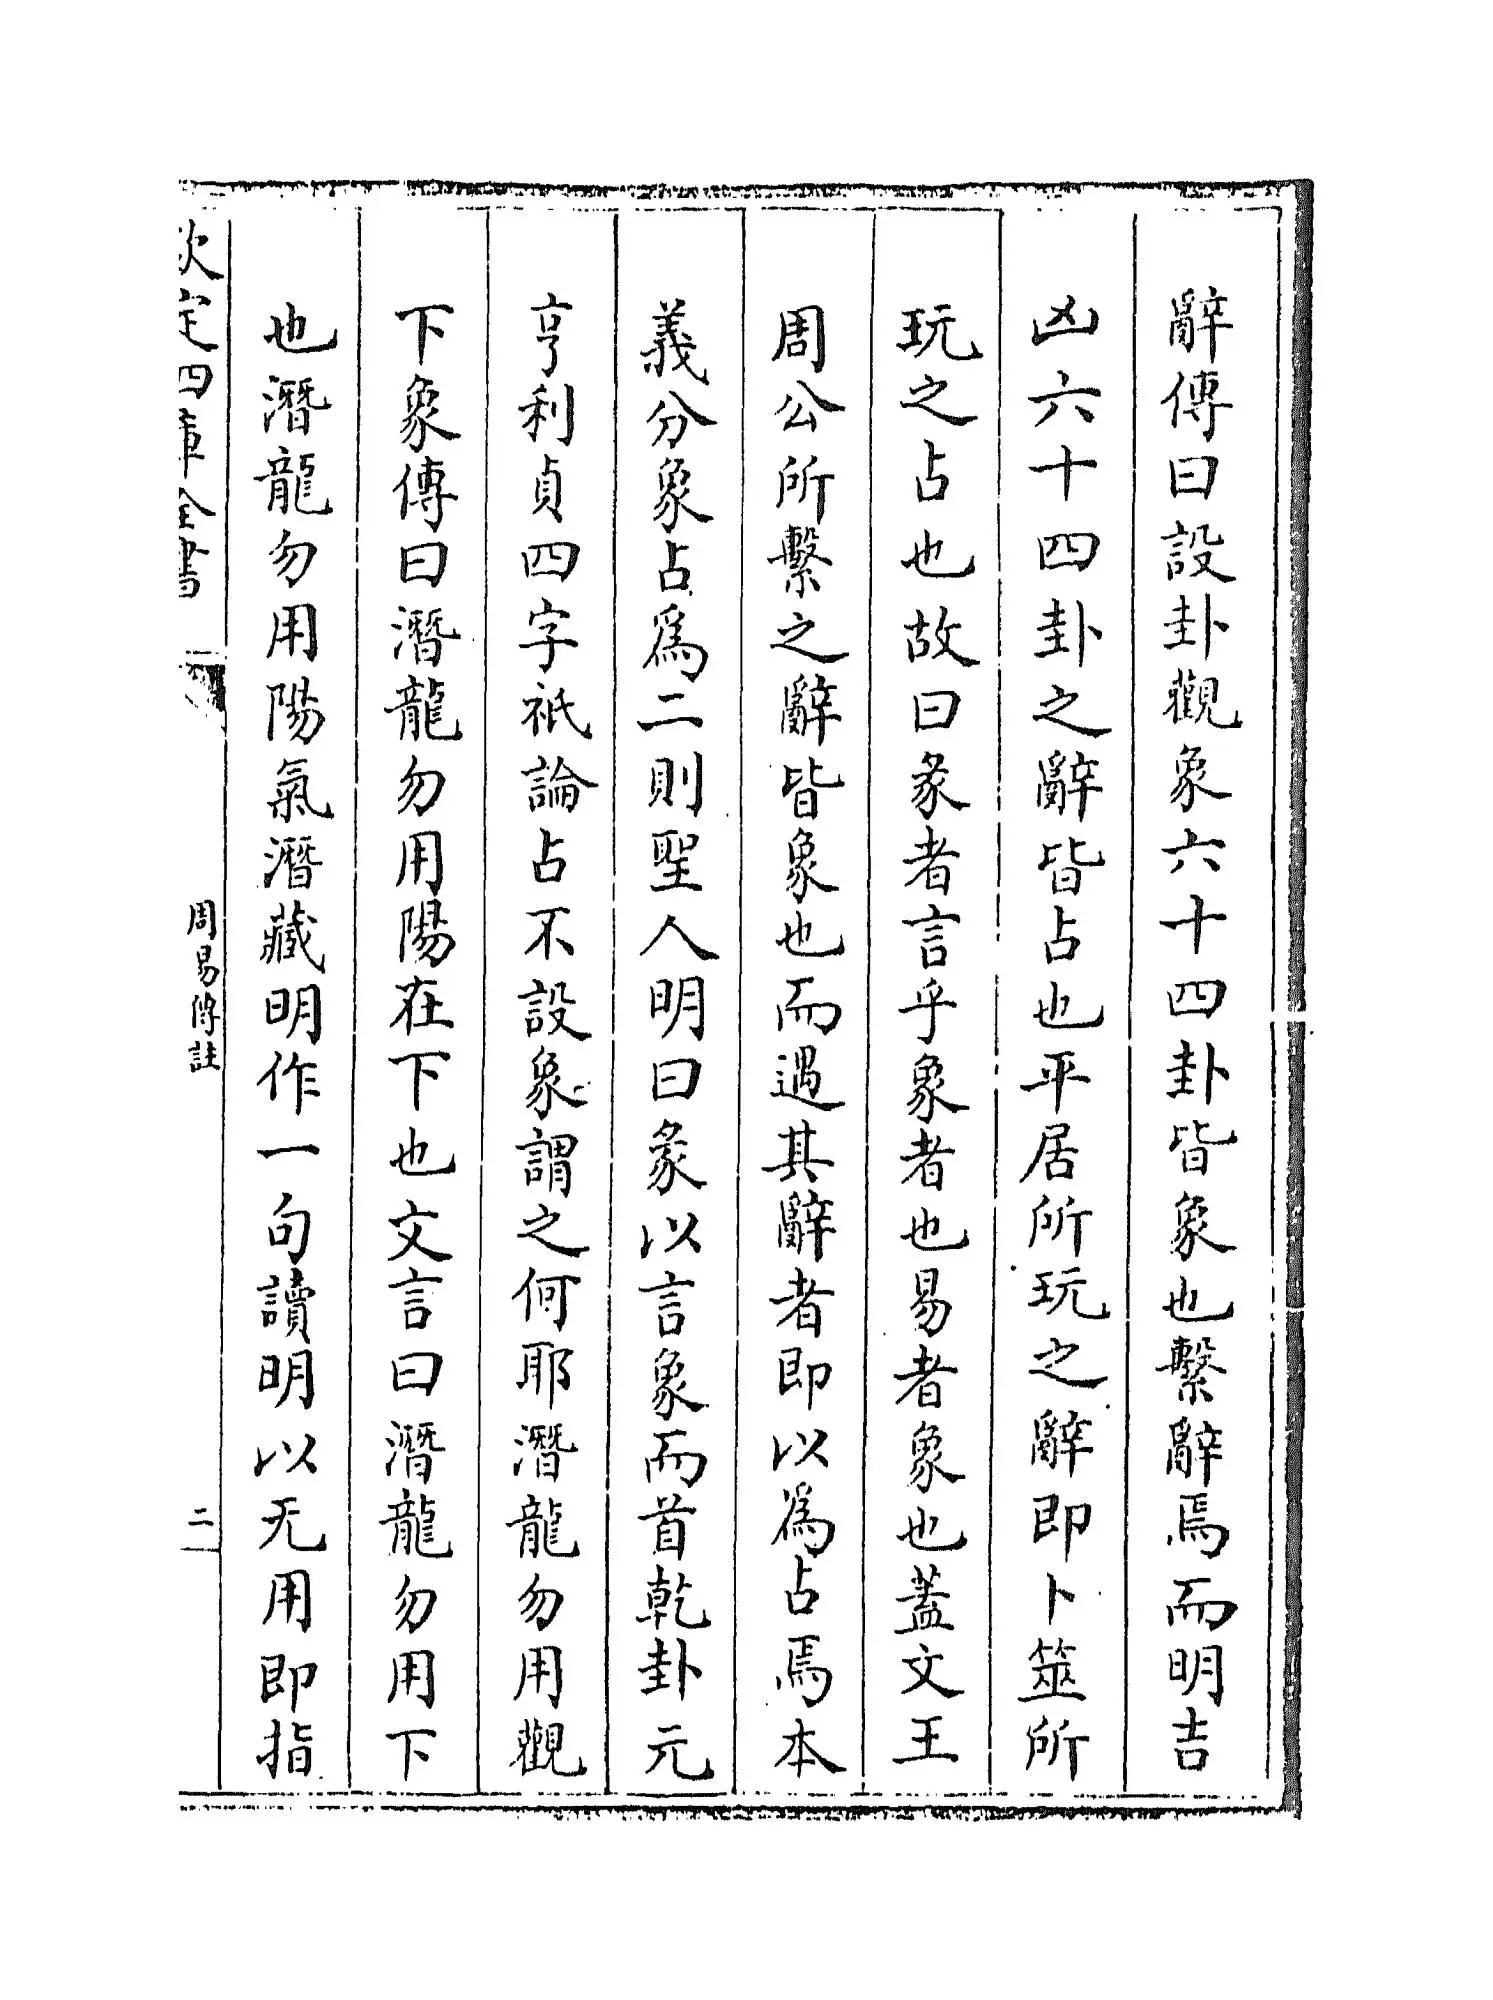 辭傳曰設卦觀象六十四卦皆象也繫辭焉而明吉
凶六十四卦之辭皆占也平居所玩之辭即卜筮所
玩之占也故曰彖者言乎象者也易者象也蓋文王
周公所繫之辭皆象也而遇其辭者即以爲占焉本
義分象占爲二則聖人明曰彖以言象而首乾卦元
亨利貞四字祇論占不設象謂之何耶潛龍勿用觀
下象傳曰潛龍勿用陽在下也文言曰潛龍勿用下
也潛龍勿用陽氣潛藏明作一句讀明以无用即指
欽定四庫全書
周易傳註
二